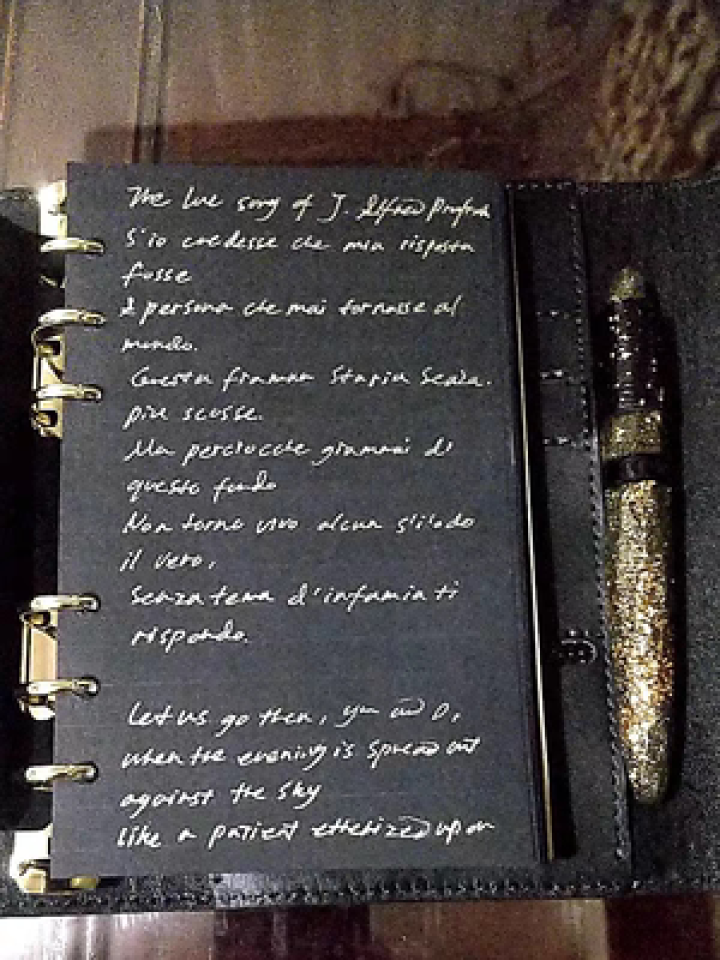 The love song of J. Alfred Prufrock
S'io credesse che mia risposta
fosse
A persona che mai tornasse al
mondo.
Questa fiamma staria senza.
più scosse.
Ma perciocche giammai di
questo fondo
Non torno vivo alcun s'i'odo
il vero,
Senza tema d'infamia ti
rispondo.
Let us go then, you and I,
when the evening is spread out
against the sky
like a patient etherized upon